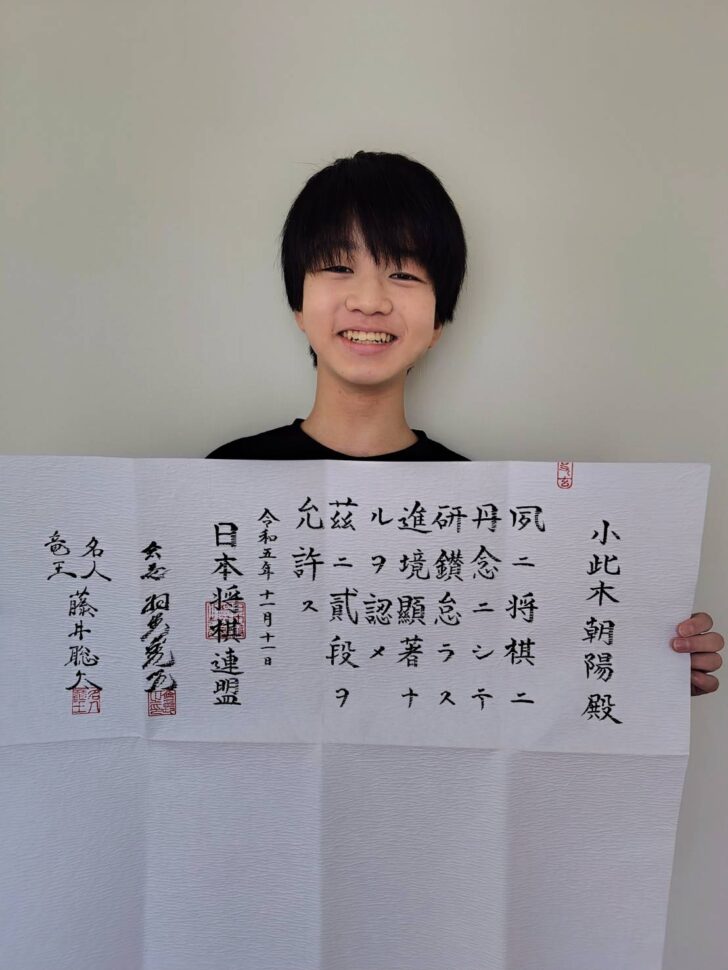 小此木朝陽殿
夙ニ将棋ニ
丹念ニシテ
研鑽怠ラス
進境顯著ナ
ルヲ認メ
茲ニ貳段ヲ
允許ス
令和五年十一月十一日
日本将棋連盟
会長 羽生善治
名人
竜王
藤井聡太